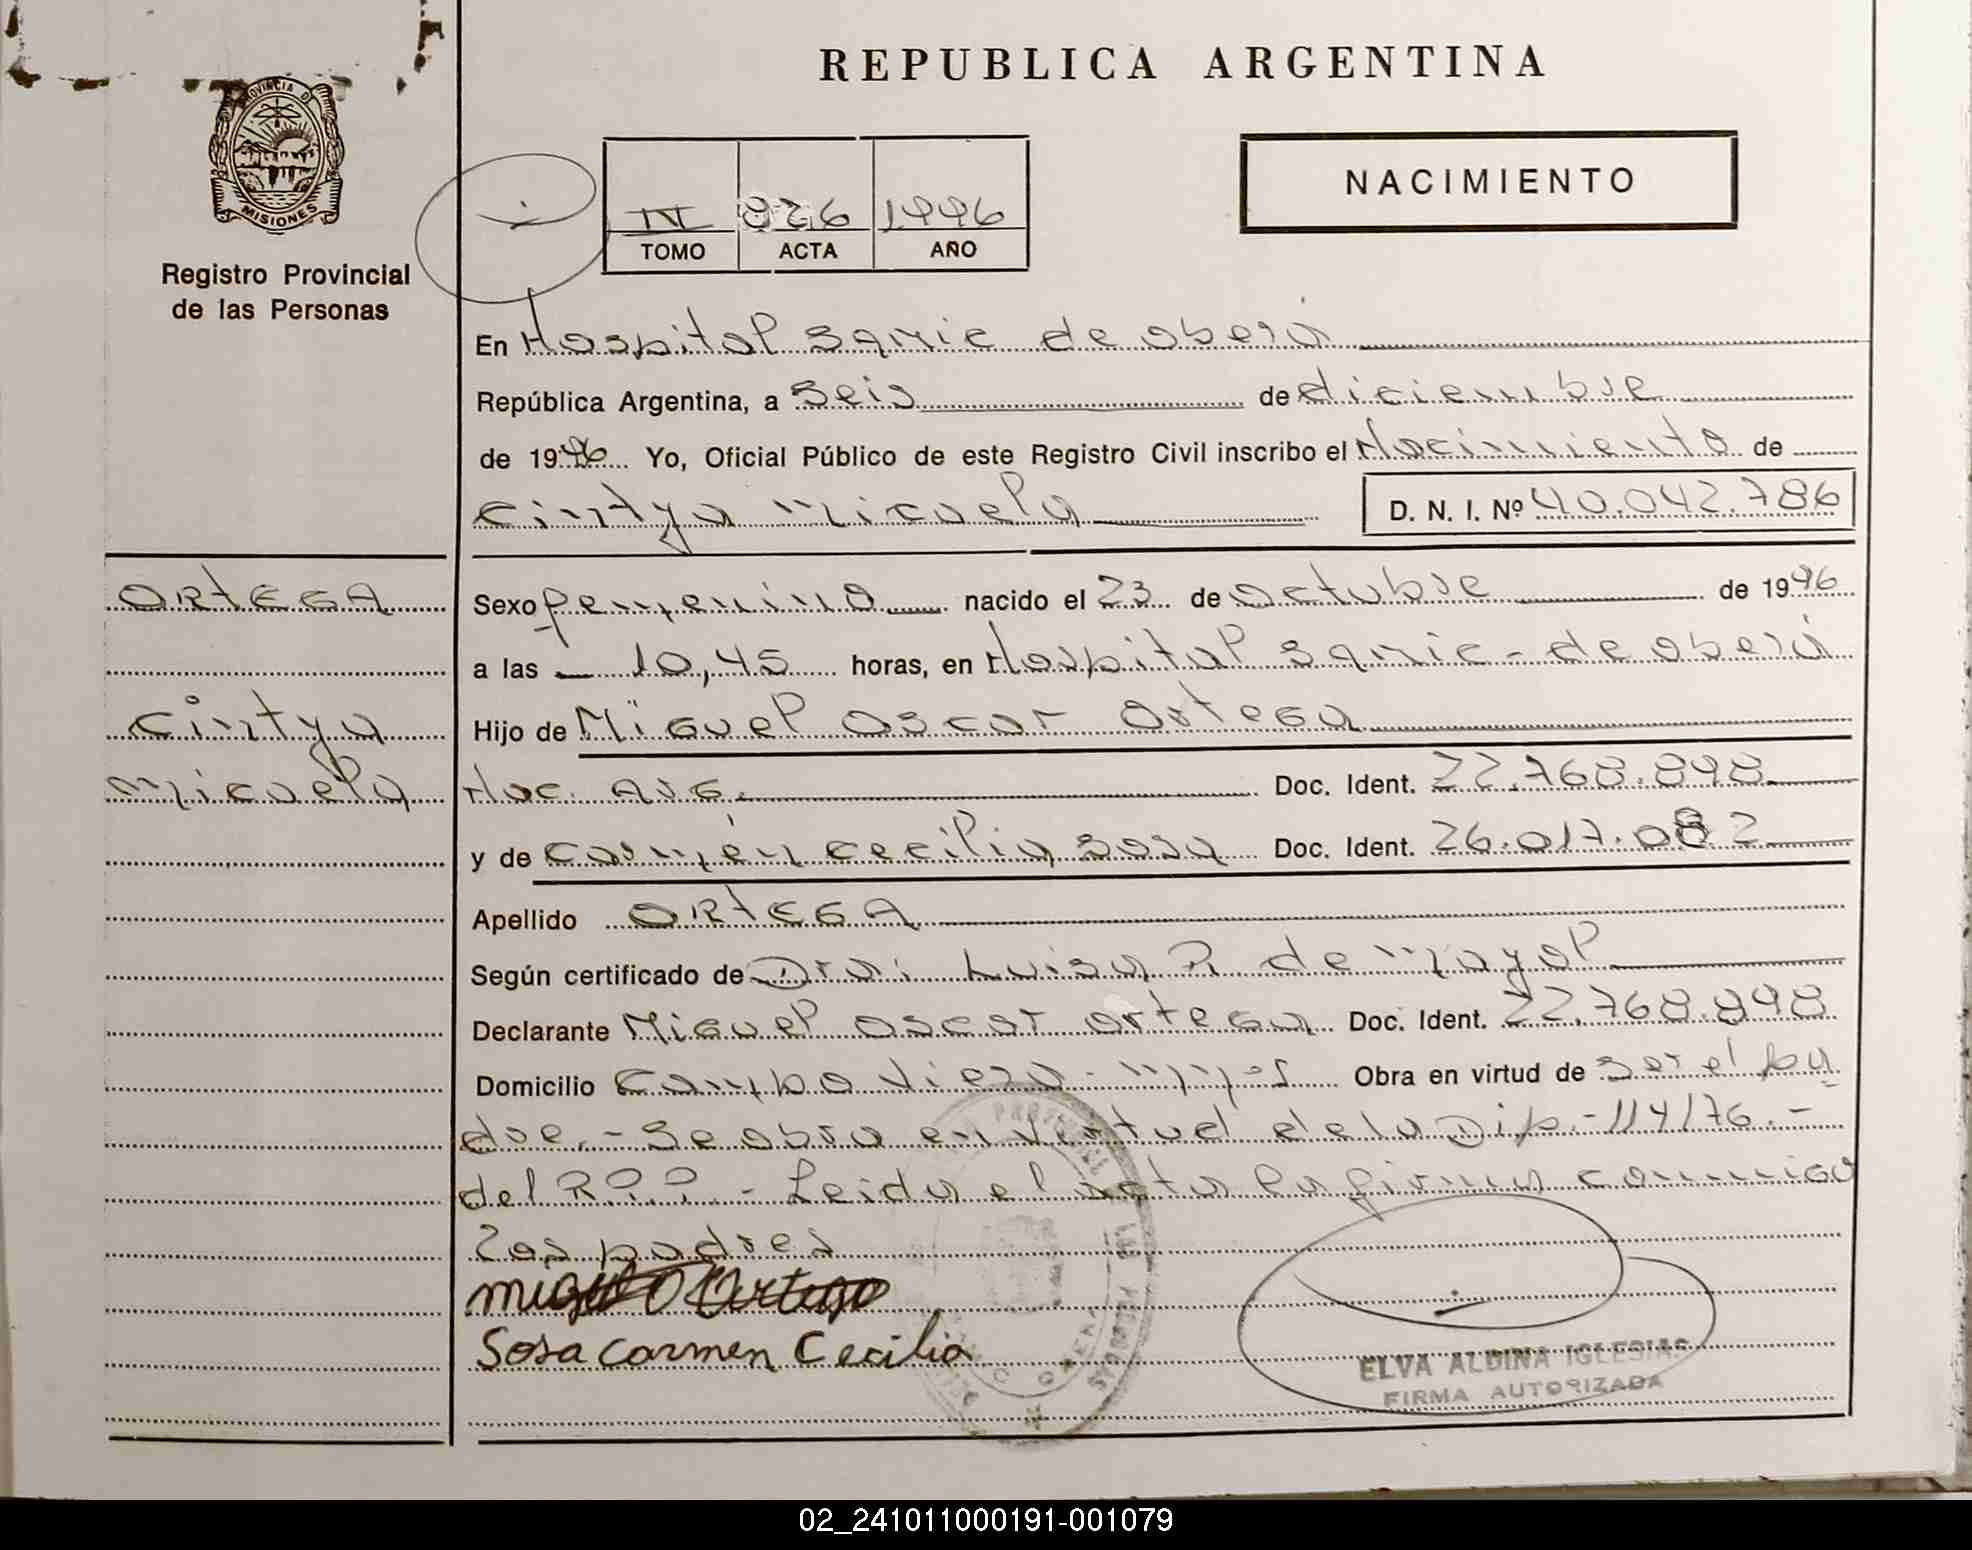 REPUBLICA ARGENTINA
PROVINCIA D
MISIONES
Registro Provincial
de las Personas
IV 926 1996
TOMO ACTA AÑO
NACIMIENTO
En Hospital Samic de oberá
República Argentina, a seis de diciembre
de 1996 Yo, Oficial Público de este Registro Civil inscribo el Nacimiento de
cintya micaela D. N. I. Nº 40.042.786
ORtEGA
cintya
micaela
Sexo femenino nacido el 23 de octubre de 1996
a las 10,45 horas, en Hospital Samic - de oberá
Hijo de Miguel oscar Ortega
Nac. Arg. Doc. Ident. 22.768.898
y de carmén cecilia sosa Doc. Ident. 26.017.082
Apellido ORtEGA
Según certificado de Dra: Luisa R. de mayol
Declarante Miguel oscar ortega Doc. Ident. 22.768.898
Domicilio Campo Viera - Obra en virtud de ser el pa
dre. - Se obra en virtud de la Dip. - 114/76. -
del R.P.P. - Leida el acta la firman conmigo
los padres
Ortega
Sosa Carmen Cecilia
ELVA ALBINA IGLESIAS
FIRMA AUTORIZADA
02_241011000191-001079